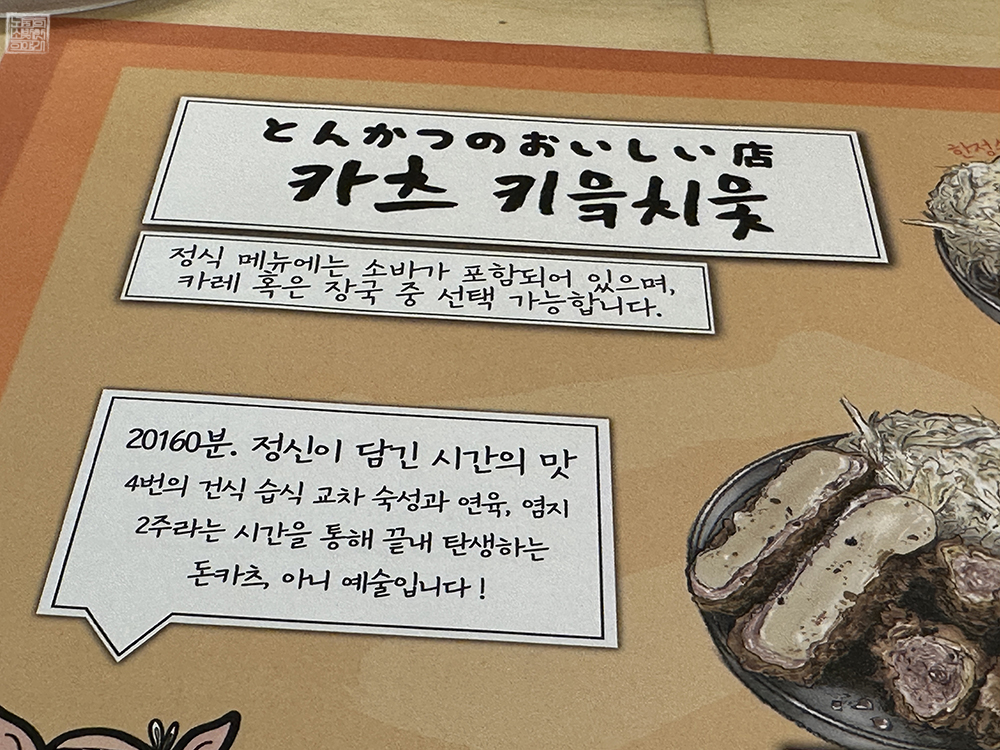 とんかつのおいしい店
카츠 키읔치읓
정식 메뉴에는 소바가 포함되어 있으며,
카레 혹은 장국 중 선택 가능합니다.
20160분. 정신이 담긴 시간의 맛
4번의 건식 습식 교차 숙성과 연육, 염지
2주라는 시간을 통해 끝내 탄생하는
돈카츠, 아니 예술입니다!
한정